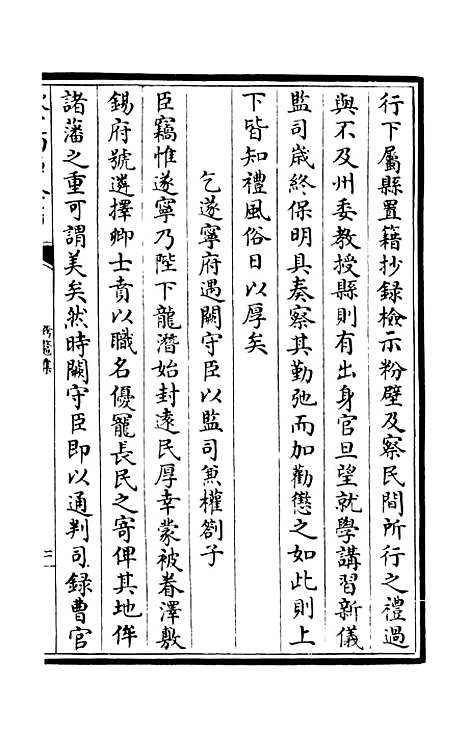 行下屬縣置籍抄録檢示粉壁及察民間所行之禮過
與不及州委教授縣則有出身官旦望就學講習新儀
監司歲終保明具奏察其勤弛而加勸懲之如此則上
下皆知禮風俗日以厚矣
乞遂寧府遇闕守臣以監司兼權劄子
臣竊惟遂寧乃陛下龍潛始封逺民厚幸蒙被眷澤敷
錫府號遴擇卿士賁以職名優寵長民之寄俾其地侔
諸藩之重可謂美矣然時闕守臣即以通判司録曹官